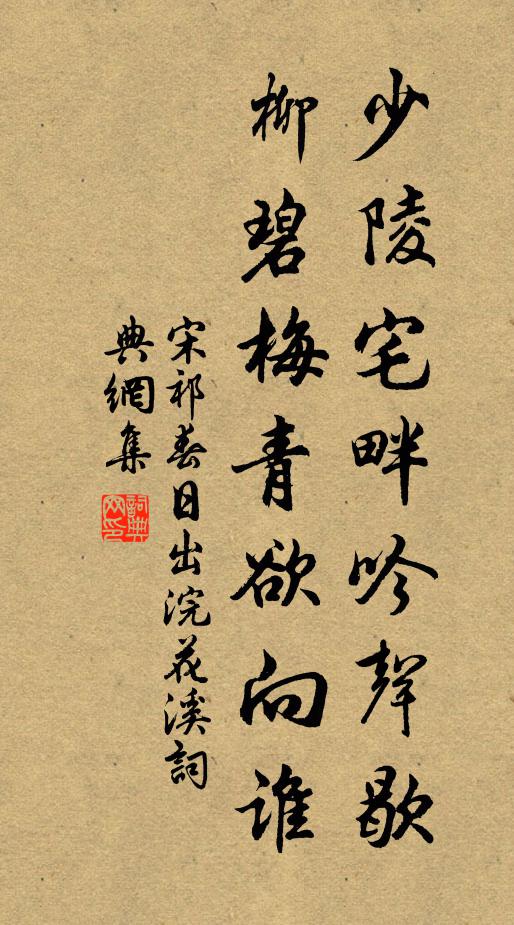 少陵宅畔吟聲歇
柳碧梅青欲向誰
宋祁春日出浣花溪詞
典網集
詞典網印